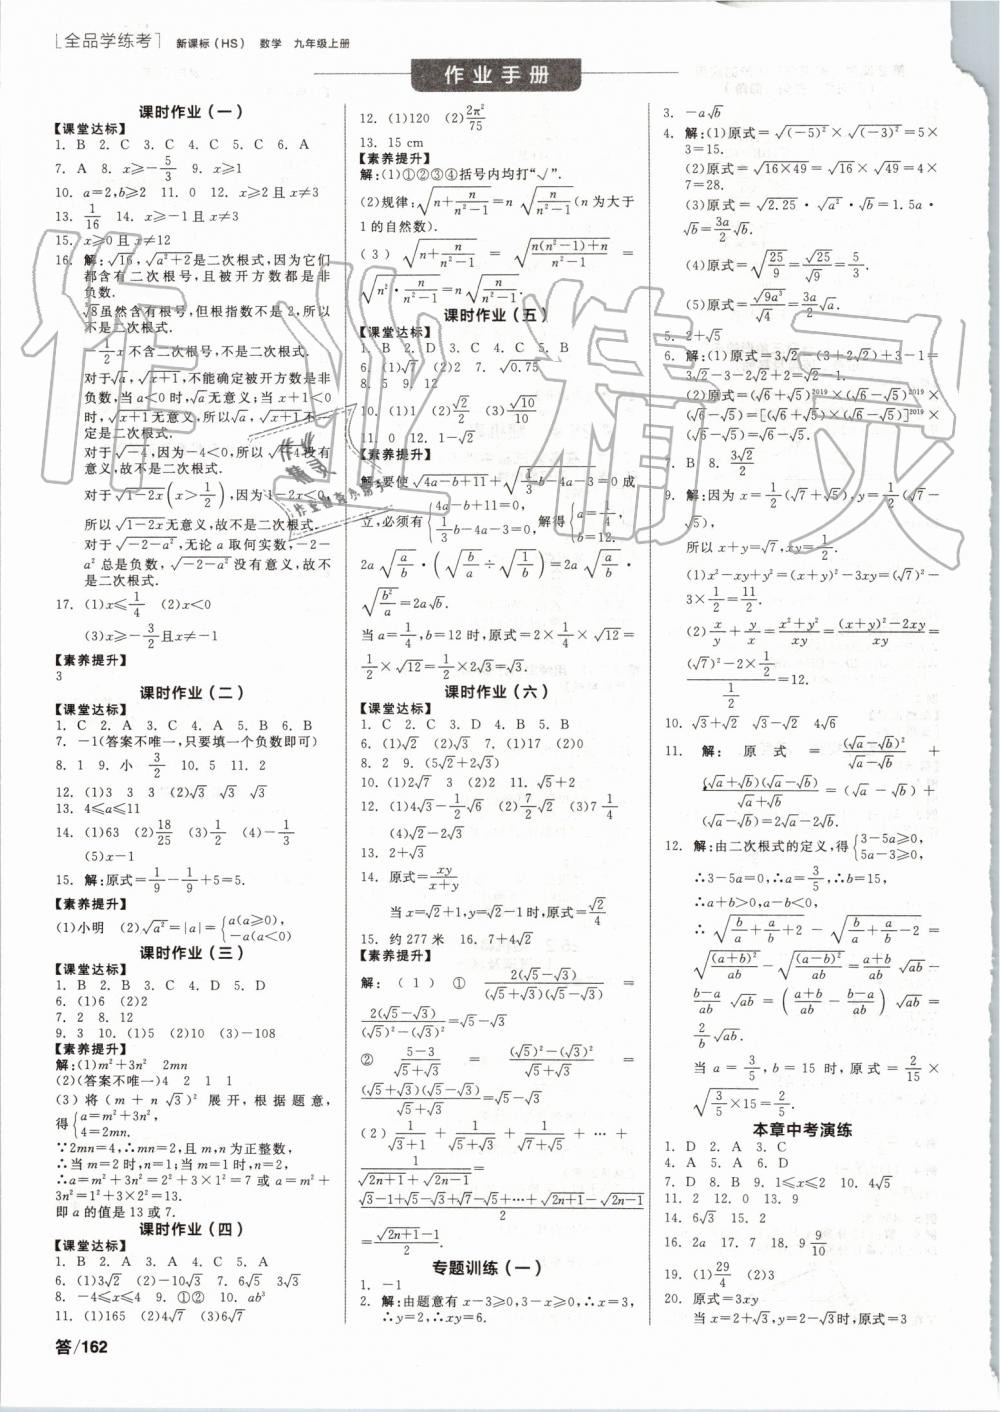 [全品学练考] 新课标(HS) 数学 九年级上册
作业手册
课时作业(一)
【课堂达标】
1. B 2. C 3. C 4. C 5. C 6. A
7. A 8. x≥-5/3 9. x≥1
10. a=2,b≥2 11. 0 12. x≥2且x≠3
13. 1/16 14. x≥-1且x≠3
15. x≥0且x≠12
16. 解:√16,√(a²+2)是二次根式,因为它们
都含有二次根号,且被开方数都是非
负数.
∛8虽然含有根号,但根指数不是2,所以
不是二次根式.
-1/2x不含二次根号,不是二次根式.
对于√a,√(x+1),不能确定被开方数是非
负数,当a<0时,√a无意义;当x+1<0
时,√(x+1)无意义,所以√a,√(x+1)不一
定是二次根式.
对于√-4,因为-4<0,所以√-4没有
意义,故不是二次根式.
对于√(1-2x)(x>1/2),因为1-2x<0,
所以√(1-2x)无意义,故不是二次根式.
对于√(-2-a²),无论a取何实数,-2-
a²总是负数,√(-2-a²)没有意义,故不
是二次根式.
17. (1)x≤1/4 (2)x<0
(3)x≥-3/2且x≠-1
【素养提升】
3
课时作业(二)
【课堂达标】
1. C 2. A 3. C 4. A 5. B 6. B
7. -1(答案不唯一,只要填一个负数即可)
8. 1 9. 小 3/2 10. 5 11. 2
12. (1)3 3 3 (2)√3 √3 √3
13. 4≤a≤11
14. (1)63 (2)18/25 (3)1/2 (4)-1/3
(5)x-1
15. 解:原式=1/9-1/9+5=5.
【素养提升】
(1)小明 (2)√a²=|a|={a(a≥0), -a(a<0)
课时作业(三)
【课堂达标】
1. B 2. B 3. C 4. D 5. D
6. (1)6 (2)2
7. 2 8. 12
9. 3 10. (1)5 (2)10 (3)-108
【素养提升】
解:(1)m²+3n² 2mn
(2)(答案不唯一)4 2 1 1
(3)将(m+n√3)²展开,根据题意,
得{a=m²+3n², 4=2mn.
∵2mn=4,∴mn=2,且m,n为正整数,
∴当m=2时,n=1;当m=1时,n=2,
∴a=m²+3n²=2²+3×1²=7或a=m²+
3n²=1²+3×2²=13.
即a的值是13或7.
课时作业(四)
【课堂达标】
1. B 2. A 3. A 4. C 5. A
6. (1)3√2 (2)-10√3 7. 6√5 3√3
8. -4≤x≤4 9. ①② 10. ab³
11. (1)165 (2)4√7 (3)6√7
答/162
12. (1)120 (2)2π²/75
13. 15 cm
【素养提升】
解:(1)①②③④括号内均打“√”.
(2)规律:√(n+n/(n²-1))=n√(n/(n²-1))(n为大于
1的自然数).
(3)√(n+n/(n²-1))=√((n(n²-1)+n)/(n²-1))=
√(n²·n/(n²-1))=n√(n/(n²-1)).
课时作业(五)
【课堂达标】
1. B 2. D 3. C 4. C 5. B
6. (1)√7 (2)2 7. √0.75
8. 5 9. 12
10. (1)1 (2)√2/2 (3)√10/10
11. 0 12. 1-√2
【素养提升】
解:要使√(4a-b+11)+√(1/3b-4a-3)=0成
立,必须有{4a-b+11=0, 1/3b-4a-3=0, 解得{a=1/4, b=12.
2a√(a/b)·(√(a/b)÷√(1/b))=2a√(a/b)·
√(b²/a)=2a√b.
当a=1/4,b=12时,原式=2×1/4×√12=
1/2×√12=1/2×2√3=√3.
课时作业(六)
【课堂达标】
1. C 2. C 3. B 4. D 5. B
6. (1)√2 (2)√3 7. (1)17 (2)0
8. 2 9. (5√2+2√3)
10. (1)2√7 3 (2)2 11. √5+2
12. (1)4√3-1/2√6 (2)7/2√2 (3)7 1/4
(4)√2-2√3
13. 2+√3
14. 原式=xy/(x+y)
当x=√2+1,y=√2-1时,原式=√2/4
15. 约277米 16. 7+4√2
【素养提升】
解:(1)①2(√5-√3)/((√5+√3)(√5-√3))=
2(√5-√3)/((√5)²-(√3)²)=√5-√3
②(5-3)/(√5+√3)=((√5)²-(√3)²)/(√5+√3)=
(√5+√3)(√5-√3)/(√5+√3)=√5-√3
(2)1/(√3+1)+1/(√5+√3)+1/(√7+√5)+…+
1/(√(2n+1)+√(2n-1))=
(√3-1+√5-√3+√7-√5+…+√(2n+1)-√(2n-1))/2
=(√(2n+1)-1)/2.
专题训练(一)
1. -1
2. 解:由题意有x-3≥0,3-x≥0,∴x=3,
∴y=2,∴xy=6.
3. -a√b
4. 解:(1)原式=√(-5)²×√(-3)²=5×
3=15.
(2)原式=√(16×49)=√16×√49=4×
7=28.
(3)原式=√2.25·√a²·√b=1.5a·
√b=3a/2√b.
(4)原式=√(25/9)=√25/√9=5/3.
(5)原式=√9a³/√4=3a/2√a.
5. 2+√5
6. 解:(1)原式=3√2-(3+2√2)+3-1=
3√2-3-2√2+2=√2-1.
(2)原式=(√6+√5)²⁰¹⁹×(√6-√5)²⁰¹⁹×
(√6-√5)=[(√6+√5)×(√6-√5)]²⁰¹⁹×
(√6-√5)=1×(√6-√5)=√6-√5.
7. B 8. 3√2/2
9. 解:因为x=1/2(√7+√5),y=1/2(√7-
√5),
所以x+y=√7,xy=1/2.
(1)x²-xy+y²=(x+y)²-3xy=(√7)²-
3×1/2=11/2.
(2)x/y+y/x=(x²+y²)/xy=((x+y)²-2xy)/xy=
((√7)²-2×1/2)/(1/2)=12.
10. √3+√2 √3-√2 4√6
11. 解:原式=(√a-√b)²/(√a-√b)+
(√a+√b)(√a-√b)/(√a+√b)=(√a-√b)+
(√a-√b)=2√a-2√b.
12. 解:由二次根式的定义,得{3-5a≥0, 5a-3≥0,
∴3-5a=0,∴a=3/5,∴b=15,
∴a+b>0,a-b<0,
∴√(b/a+a/b+2)-√(b/a+a/b-2)=
√((a+b)²/ab)-√((a-b)²/ab)=(a+b)/ab√ab-
(b-a)/ab√ab=((a+b)/ab-(b-a)/ab)√ab=
2/b√ab.
当a=3/5,b=15时,原式=2/15×
√(3/5×15)=2/5.
本章中考演练
1. D 2. A 3. C
4. A 5. A 6. D
7. D 8. B 9. 1≤x≤2 10. 4√5
11. 2 12. 0 13. 9
14. 6√3 15. 2
16. 2a 17. 7 18. 9 9/10
19. (1)29/4 (2)3
20. 原式=3xy
当x=2+√3,y=2-√3时,原式=3
作业精灵